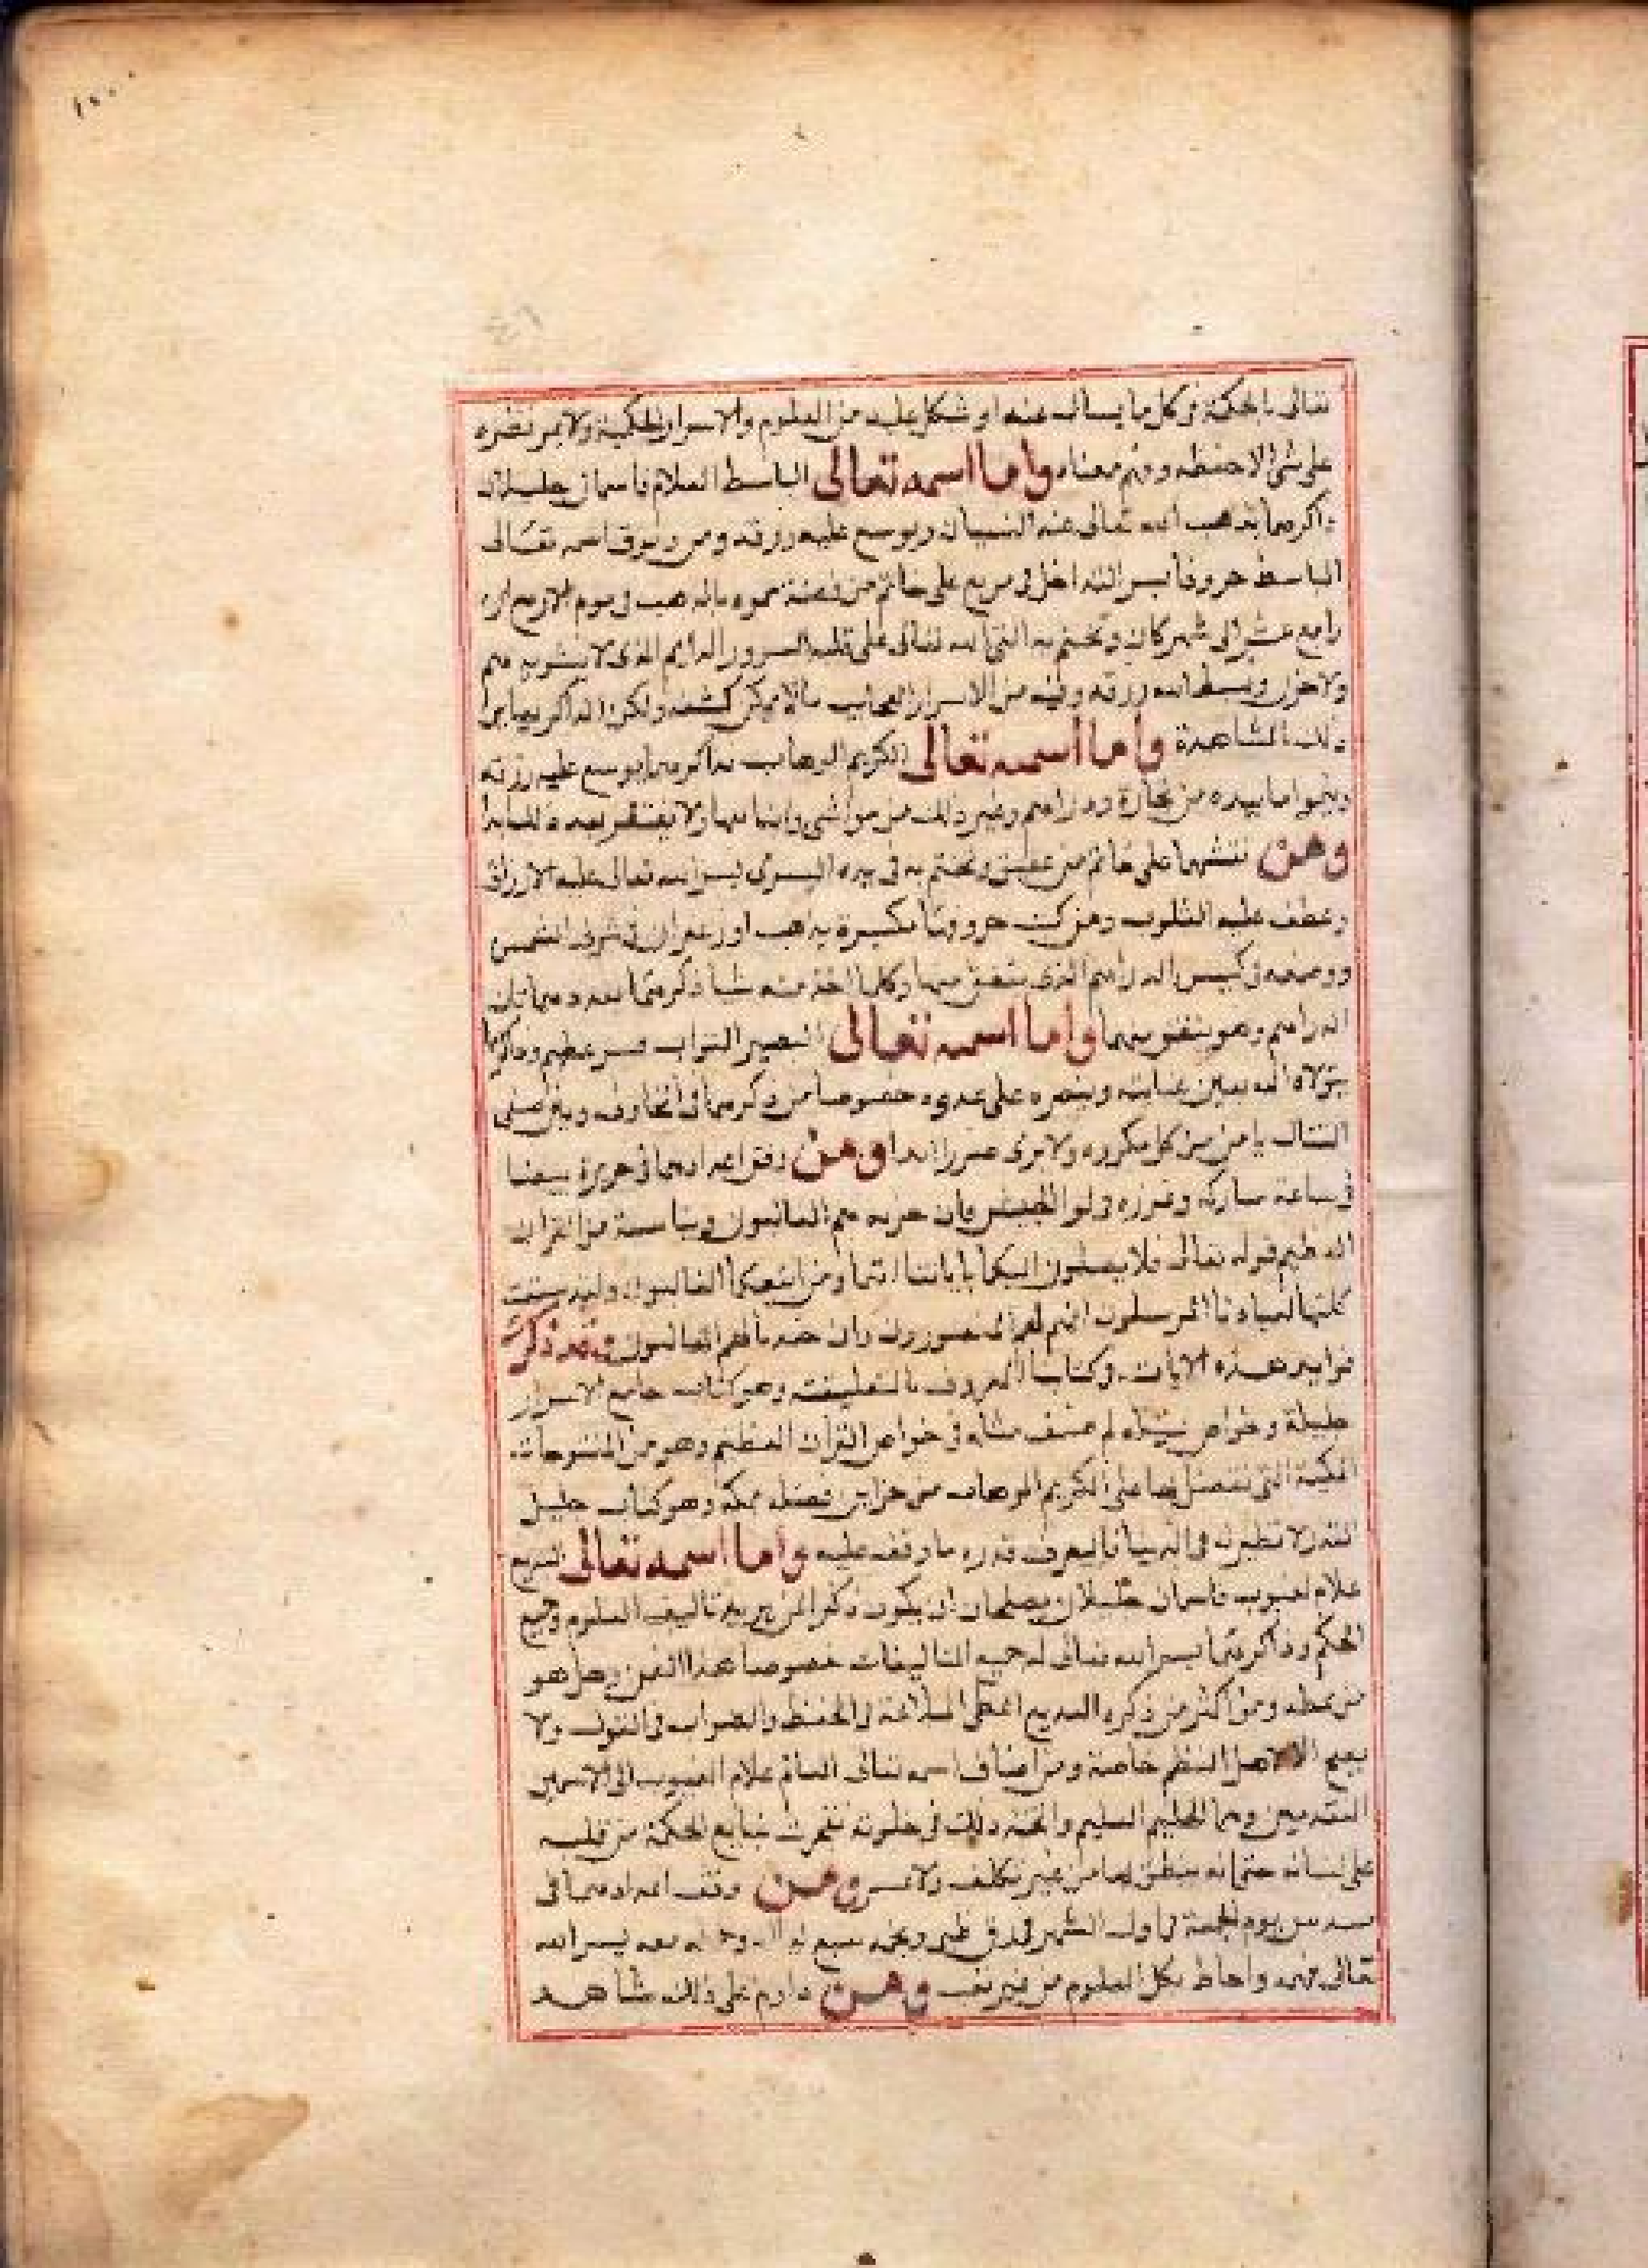 ١٠٠
٤٦
تعالى بالحكمة في كل ما يسأل عنه او شكل عليه من العلوم والاسرار الحكمية ولا يمر نظره
على شئ الا حفظه وفهم معناه واما اسمه تعالى الباسط العلام فاسمان جليلان
ذاكرهما يذهب الله تعالى عنه النسيان ويوسع عليه رزقه ومن اسمه تعالى
الباسط حروفا في مربع على خاتم من فضة مموه بالذهب في يوم الاربع
رابع عشر اى شهر كان وتختم به القى الله تعالى على قلبه السرور الدايم الذى لا يشوبه هم
ولا حزن وبسط الله رزقه وفيه من الاسرار العجايب مالا يمكن كشفه ولكن الذاكر
ذلك المشاهدة واما اسمه تعالى الكريم الوهاب ذاكرهما يوسع عليه رزقه
وينموا ما بيده من تجارة ودراهم وغير ذلك من مواشى ولا يفتقر بعد ذلك ابدا
ومن نقشهما على خاتم من عقيق وتختم به فى يده اليسرى يسر الله تعالى عليه الارزاق
وعطف عليه القلوب ومن كتب حروفهما مكسرة بذهب او زعفران في شرف الشمس
ووضعه في كيس الدراهم الذى ينفق منها وكلما اخذ منه شيا ذكرهما بعددهما فان
الدراهم وهو ينفق منهما واما اسمه تعالى النصير التواب عظيم
يتولاه الله بعين عنايته وينصره على عدوه خصوصا من ذكرهما في المخاوف وبين صفى
القتال يامن من كل مكروه ولا يرى ضررا ابدا ومن وفق اعدادهما فى حريرة بيضا
فى ساعة مباركة وغرزه فى لوا الجيش فان حزبه هم الغالبون من القران
العظيم قوله تعالى فلا يصلون اليكما باياتنا انتما ومن اتبعكما الغالبون ولقد سبقت
كلمتنا لعبادنا المرسلين انهم لهم المنصورون وان جندنا لهم الغالبون وقد ذكرت
هذه الايات في كتابنا المعروف كتاب جامع الاسرار
جليلة وخواص لم مثله فى خواص القران العظيم وهو من الفتوحات
المكية التى تفضل بها على الكريم الوهاب من خزاين فضله بمكة وهو كتاب جليل
القدر لا نظير له فى الدنيا قدره ما وقف عليه واما اسمه تعالى البديع
علام الغيوب فاسمان جليلان يصلحان ان يكون ذكرا لمن يريد تاليف العلوم وجمع
الحكم وذاكرهما يسر الله تعالى له جميع التاليفات خصوصا هذا الفن
ومن اكثر من ذكره البديع اعطى البلاغة والحفظ والصواب فى القول ولا
الا لاهل النظم خاصة ومن اضاف اسمه تعالى علام الغيوب الى الاسمين
المتقدمين وهما الحليم العليم واتخذ ذلك فى خلوته تفجرت ينابيع الحكمة من قلبه
على لسانه حتى انه ينطق بها من غير تكلف ولا عسر ومن وفق اعدادهما فى
مسدس يوم الجمعة فى اول الشهر في رق ظبى وحمله معه يسر الله
تعالى فهمه واحاط بكل العلوم من غير تعب ومن داوم على ذلك شاهد